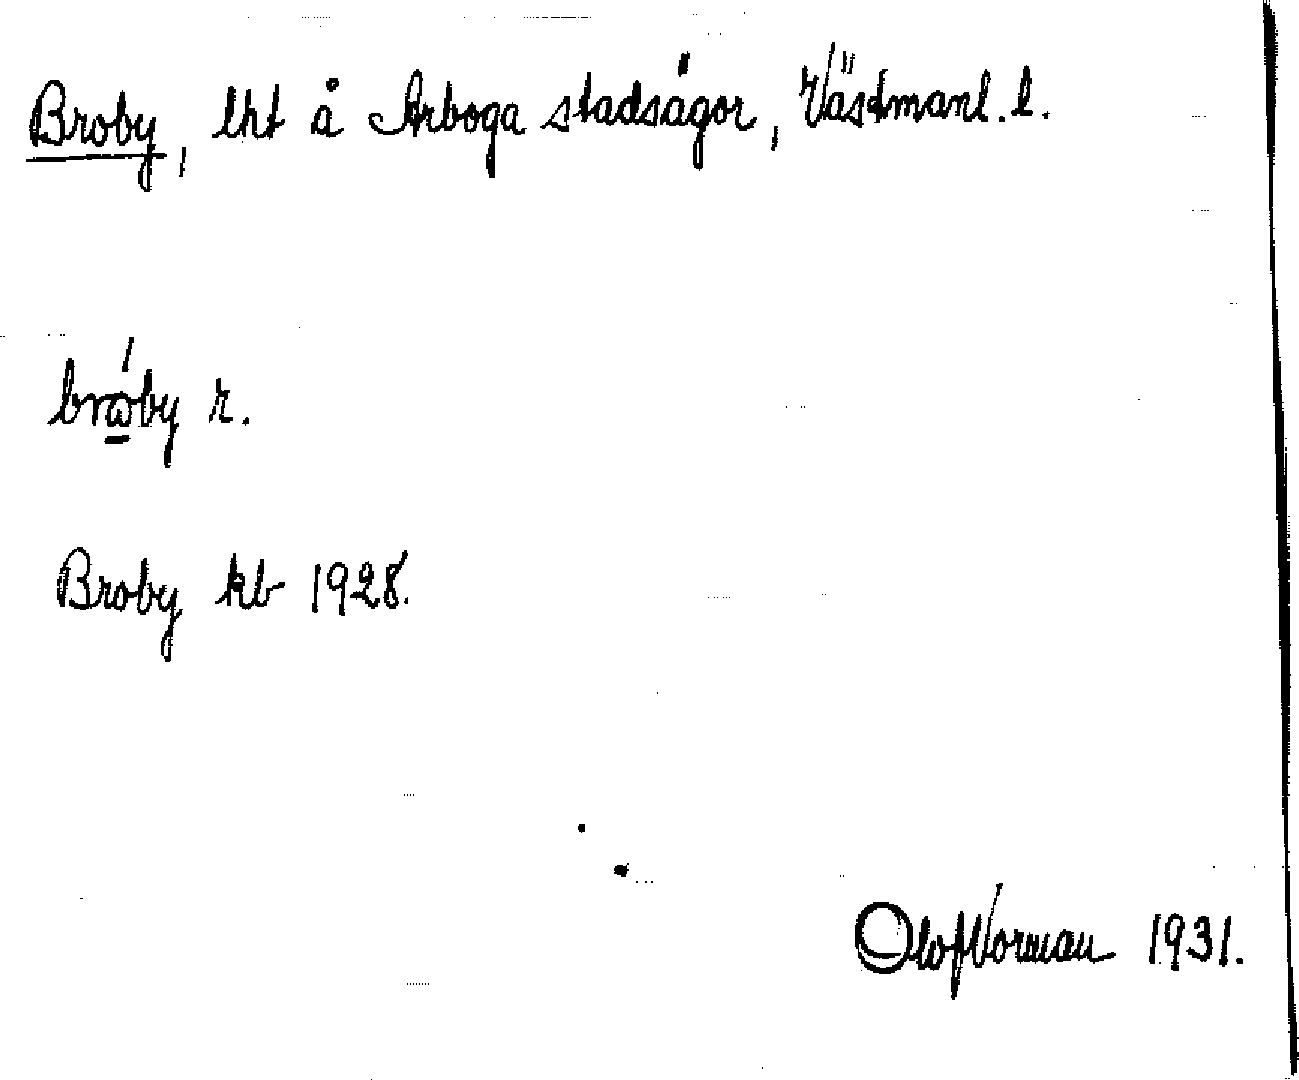 Broby, lht å Arboga stadsägor, Västmanl. l.
brώby r.
Broby kb 1928.
Olof Norman 1931.